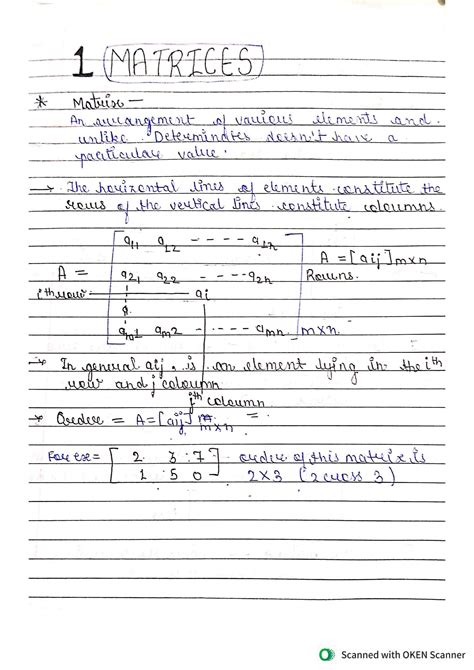 1 MATRICES
* Matrix —
An arrangement of various elements and
unlike Determinates doesn't have a
particular value.
→ The horizontal lines of elements constitute the
rows of the vertical lines constitute coloumns
a11 a12 - - - - a1n
A = a21 a22 - - - - a2n
A = [aij] m×n
Rowns.
ith row — aij
am1 am2 - - - - amn m×n
→ In general aij, is an element lying in the ith
row and j coloumn
jth coloumn
* Order = A = [aij] m×n =
For ex = [ 2 3 7 order of this matrix is
1 5 0 ] 2×3 (2 cross 3)
Scanned with OKEN Scanner